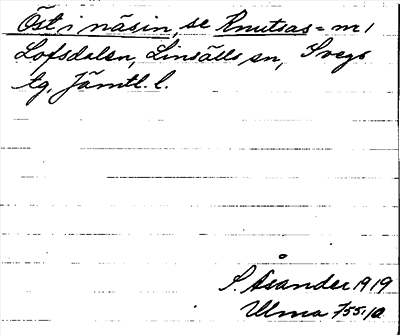 Öst i näsin, se Knutsas = m 1
Lofsdalen, Linsälls sn, Svegs
tg, Jämtl. l.
S. Åsander 1919
Ulma 755:10